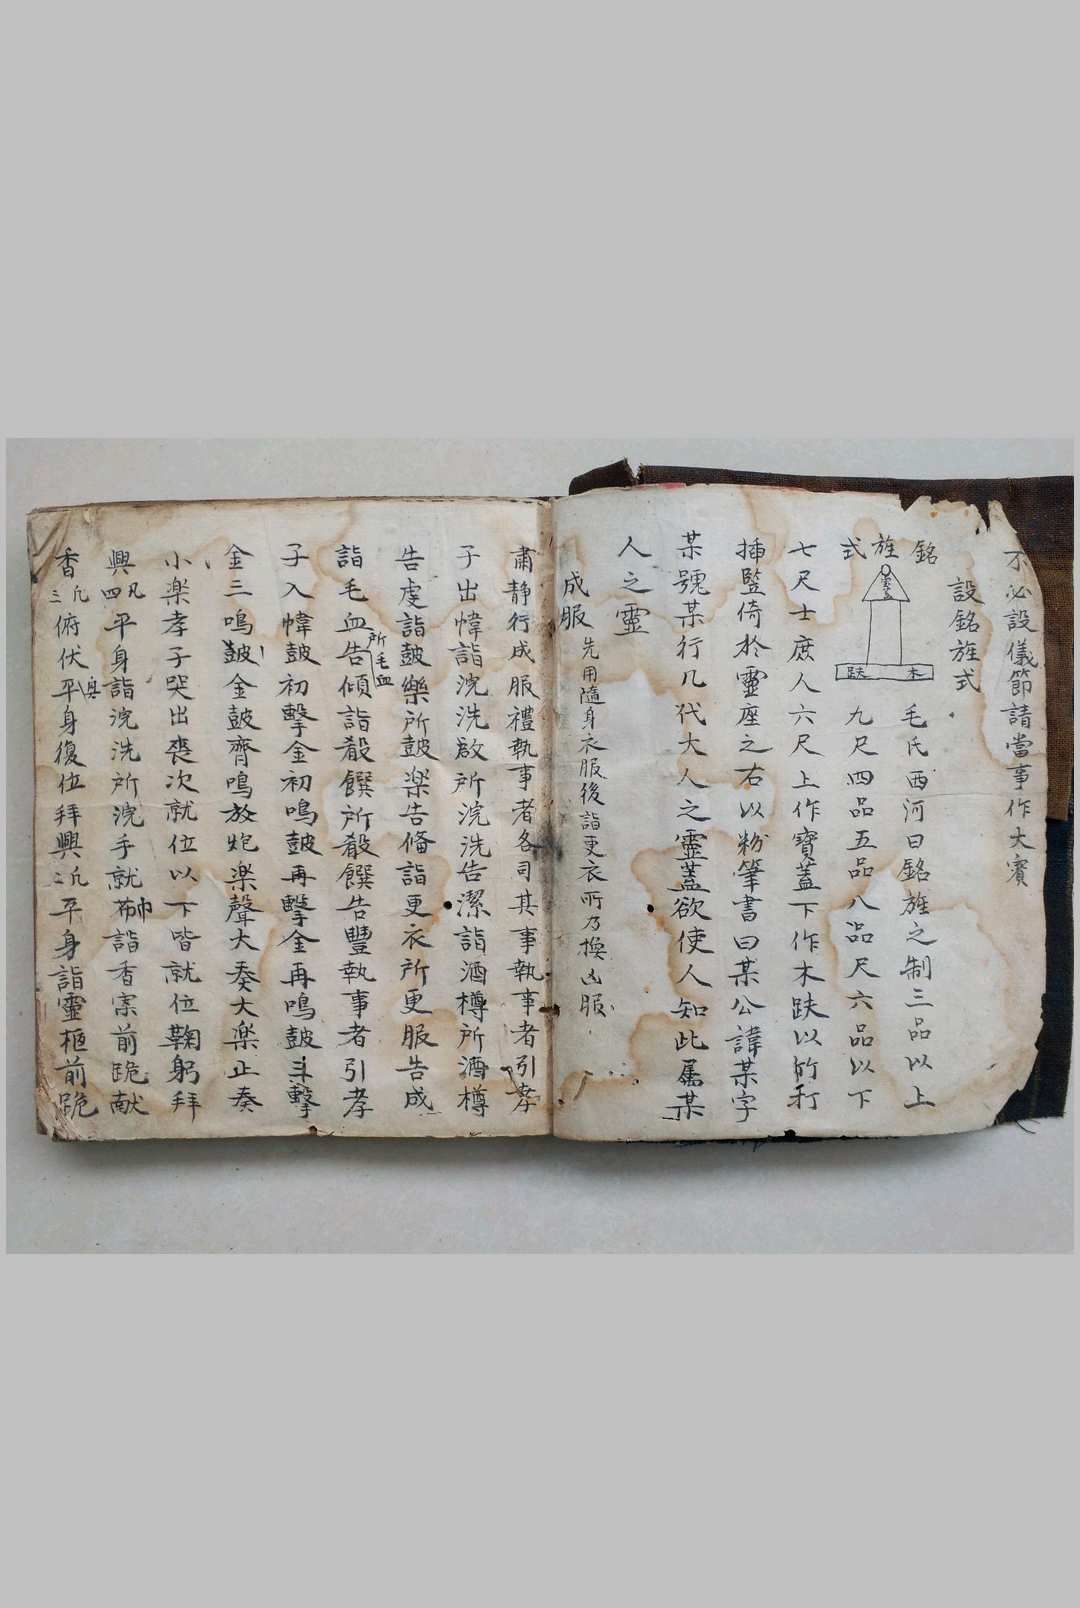 不必設儀節請當事作大賓
設銘旌式
銘旌式
寶蓋
木趺
毛氏西河曰銘旌之制三品以上
九尺四品五品八品尺六品以下
七尺士庶人六尺上作寶蓋下作木趺以竹杠
插竪倚於靈座之右以粉筆書曰某公諱某字
某號某行几代大人之靈蓋欲使人知此屬某
人之靈
成服 先用隨身衣服後詣更衣所乃換凶服
肅静行成服禮執事者各司其事執事者引孝
子出幃詣浣洗啟所浣洗告潔詣酒樽所酒樽
告虔詣鼓樂所鼓楽告備詣更衣所更服告成
詣毛血所毛血告傾詣殽饌所殽饌告豐執事者引孝
子入幃鼓初擊金初鳴鼓再擊金再鳴鼓三擊
金三鳴鼓金鼓齊鳴放炮楽聲大奏大楽止奏
小楽孝子哭出喪次就位以下皆就位鞠躬拜
興凡四平身詣浣洗所浣手就巾詣香案前跪献
香凡三俯伏興平身復位拜興凡二平身詣靈柩前跪